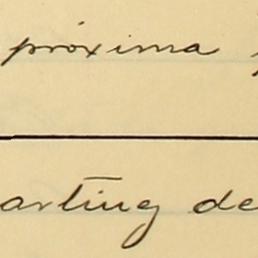 próxima
arting de